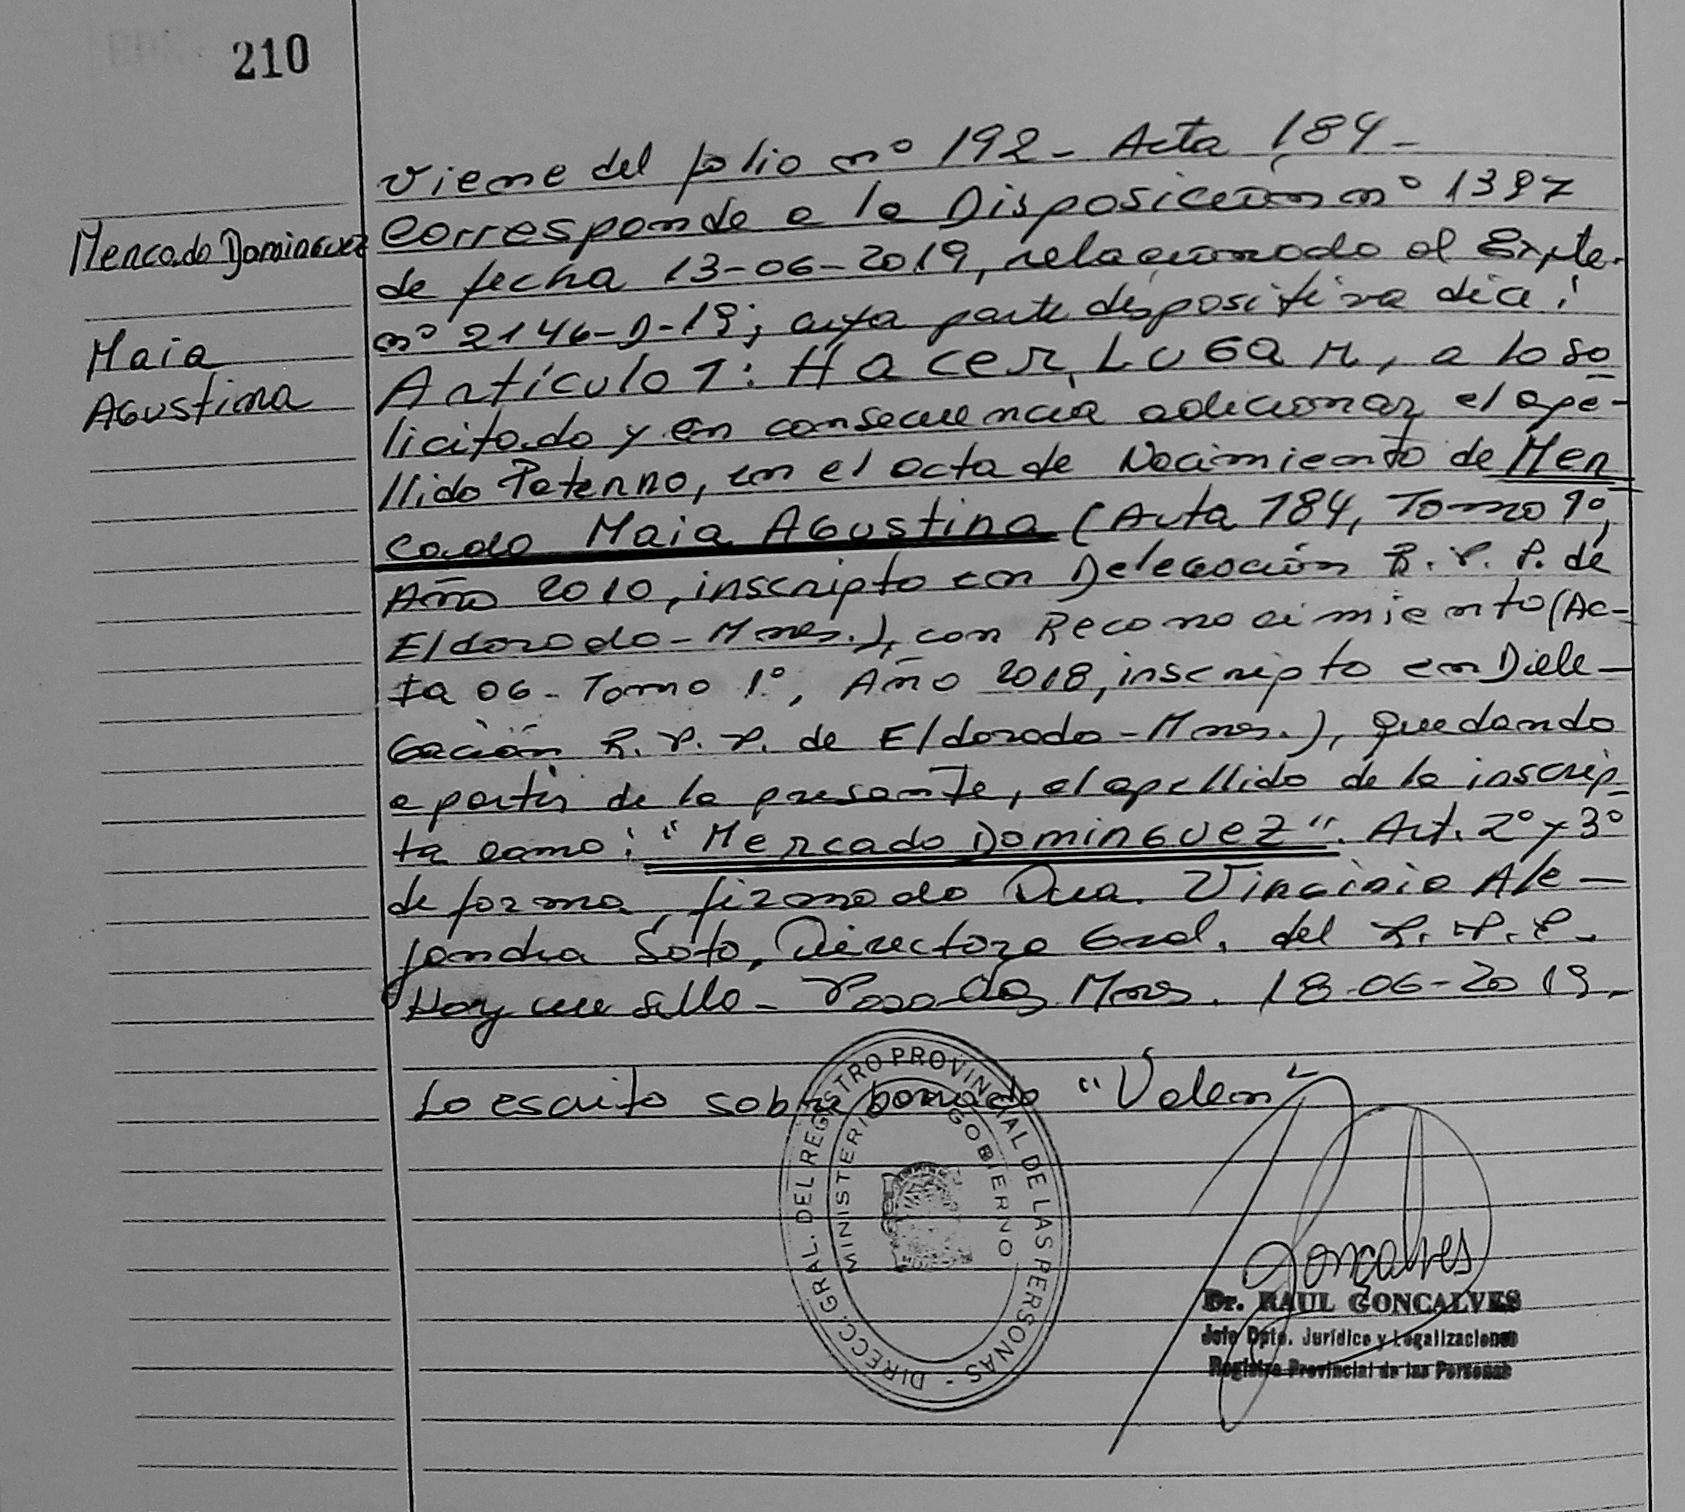 210
Viene del folio nº 192 - Acta 184 -
Mercado Dominguez
Corresponde a la Disposición nº 1387
de fecha 13-06-2019, relacionado al Expte.
nº 2146-D-19; cuya parte dispositiva dice:
Maia
Agustina
Artículo 1: HACER LUGAR, a lo so
licitado y en consecuencia adicionar el ape-
llido Paterno, en el acta de Nacimiento de Mer
cado Maia Agustina (Acta 184, Tomo 1º,
Año 2010, inscripto en Delegación R. P. P. de
Eldorado - Mnes.), con Reconocimiento (Ac-
ta 06 - Tomo 1º, Año 2018, inscripto en Dele-
gación R. P. P. de Eldorado - Mnes.), quedando
a partir de la presente, el apellido de la inscrip
ta como: "Mercado Dominguez". Art. 2º y 3º
de forma, firmado Dra. Virginia Ale-
jandra Soto, Directora Gral. del R. P. P.
Hoy un sello - Posadas Mnes. 18-06-2019.
Lo escrito sobre borrado "Valen"
DIRECC. GRAL. DEL REGISTRO PROVINCIAL DE LAS PERSONAS -
MINISTERIO GOBIERNO
Gonçalves
Dr. RAUL GONÇALVES
Jefe Dpto. Jurídico y Legalizaciones
Registro Provincial de las Personas